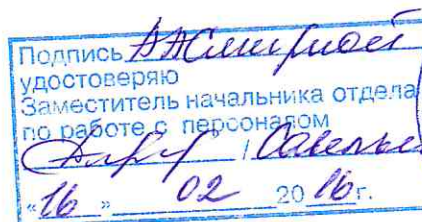 Подпись
удостоверяю
Заместитель начальника отдела
по работе с персоналом
/
«16» 02 2016г.